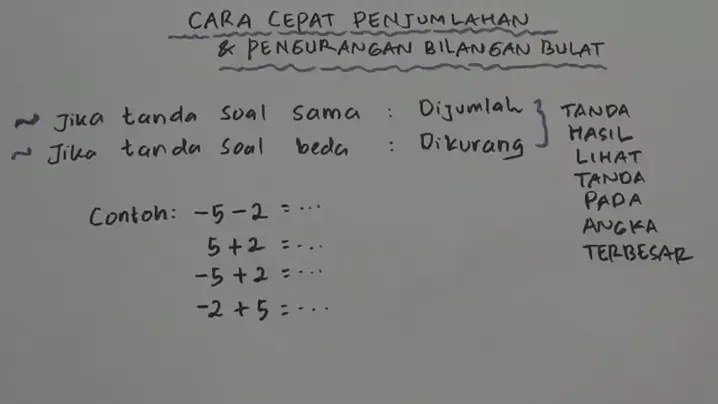 CARA CEPAT PENJUMLAHAN
& PENGURANGAN BILANGAN BULAT
~ Jika tanda soal sama : Dijumlah
~ Jika tanda soal beda : Dikurang
TANDA
HASIL
LIHAT
TANDA
PADA
ANGKA
TERBESAR
Contoh: -5 - 2 = ...
5 + 2 = ...
-5 + 2 = ...
-2 + 5 = ...